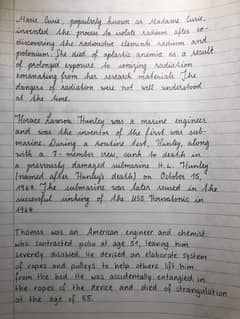 Marie Curie, popularly known as Madame Curie,
invented the process to isolate radium after co-
discovering the radioactive elements radium and
polonium. She died of aplastic anemia as a result
of prolonged exposure to ionizing radiation
emanating from her research materials. The
dangers of radiation were not well understood
at the time.
Horace Lawson Hunley was a marine engineer
and was the inventor of the first war sub-
marine. During a routine test, Hunley, along
with a 7-member crew, sunk to death in
a previously damaged submarine H. L. Hunley
(named after Hunley's death) on October 15,
The submarine was later used in the
successful sinking of the USS Housatonic in
1964.
Thomas was an American engineer and chemist
who contracted polio at age 51, leaving him
severely disabled. He devised an elaborate system
of ropes and pulleys to help others lift him
from the bed. He was accidentally entangled in
the ropes of the device and died of strangulation
at the age of 55.